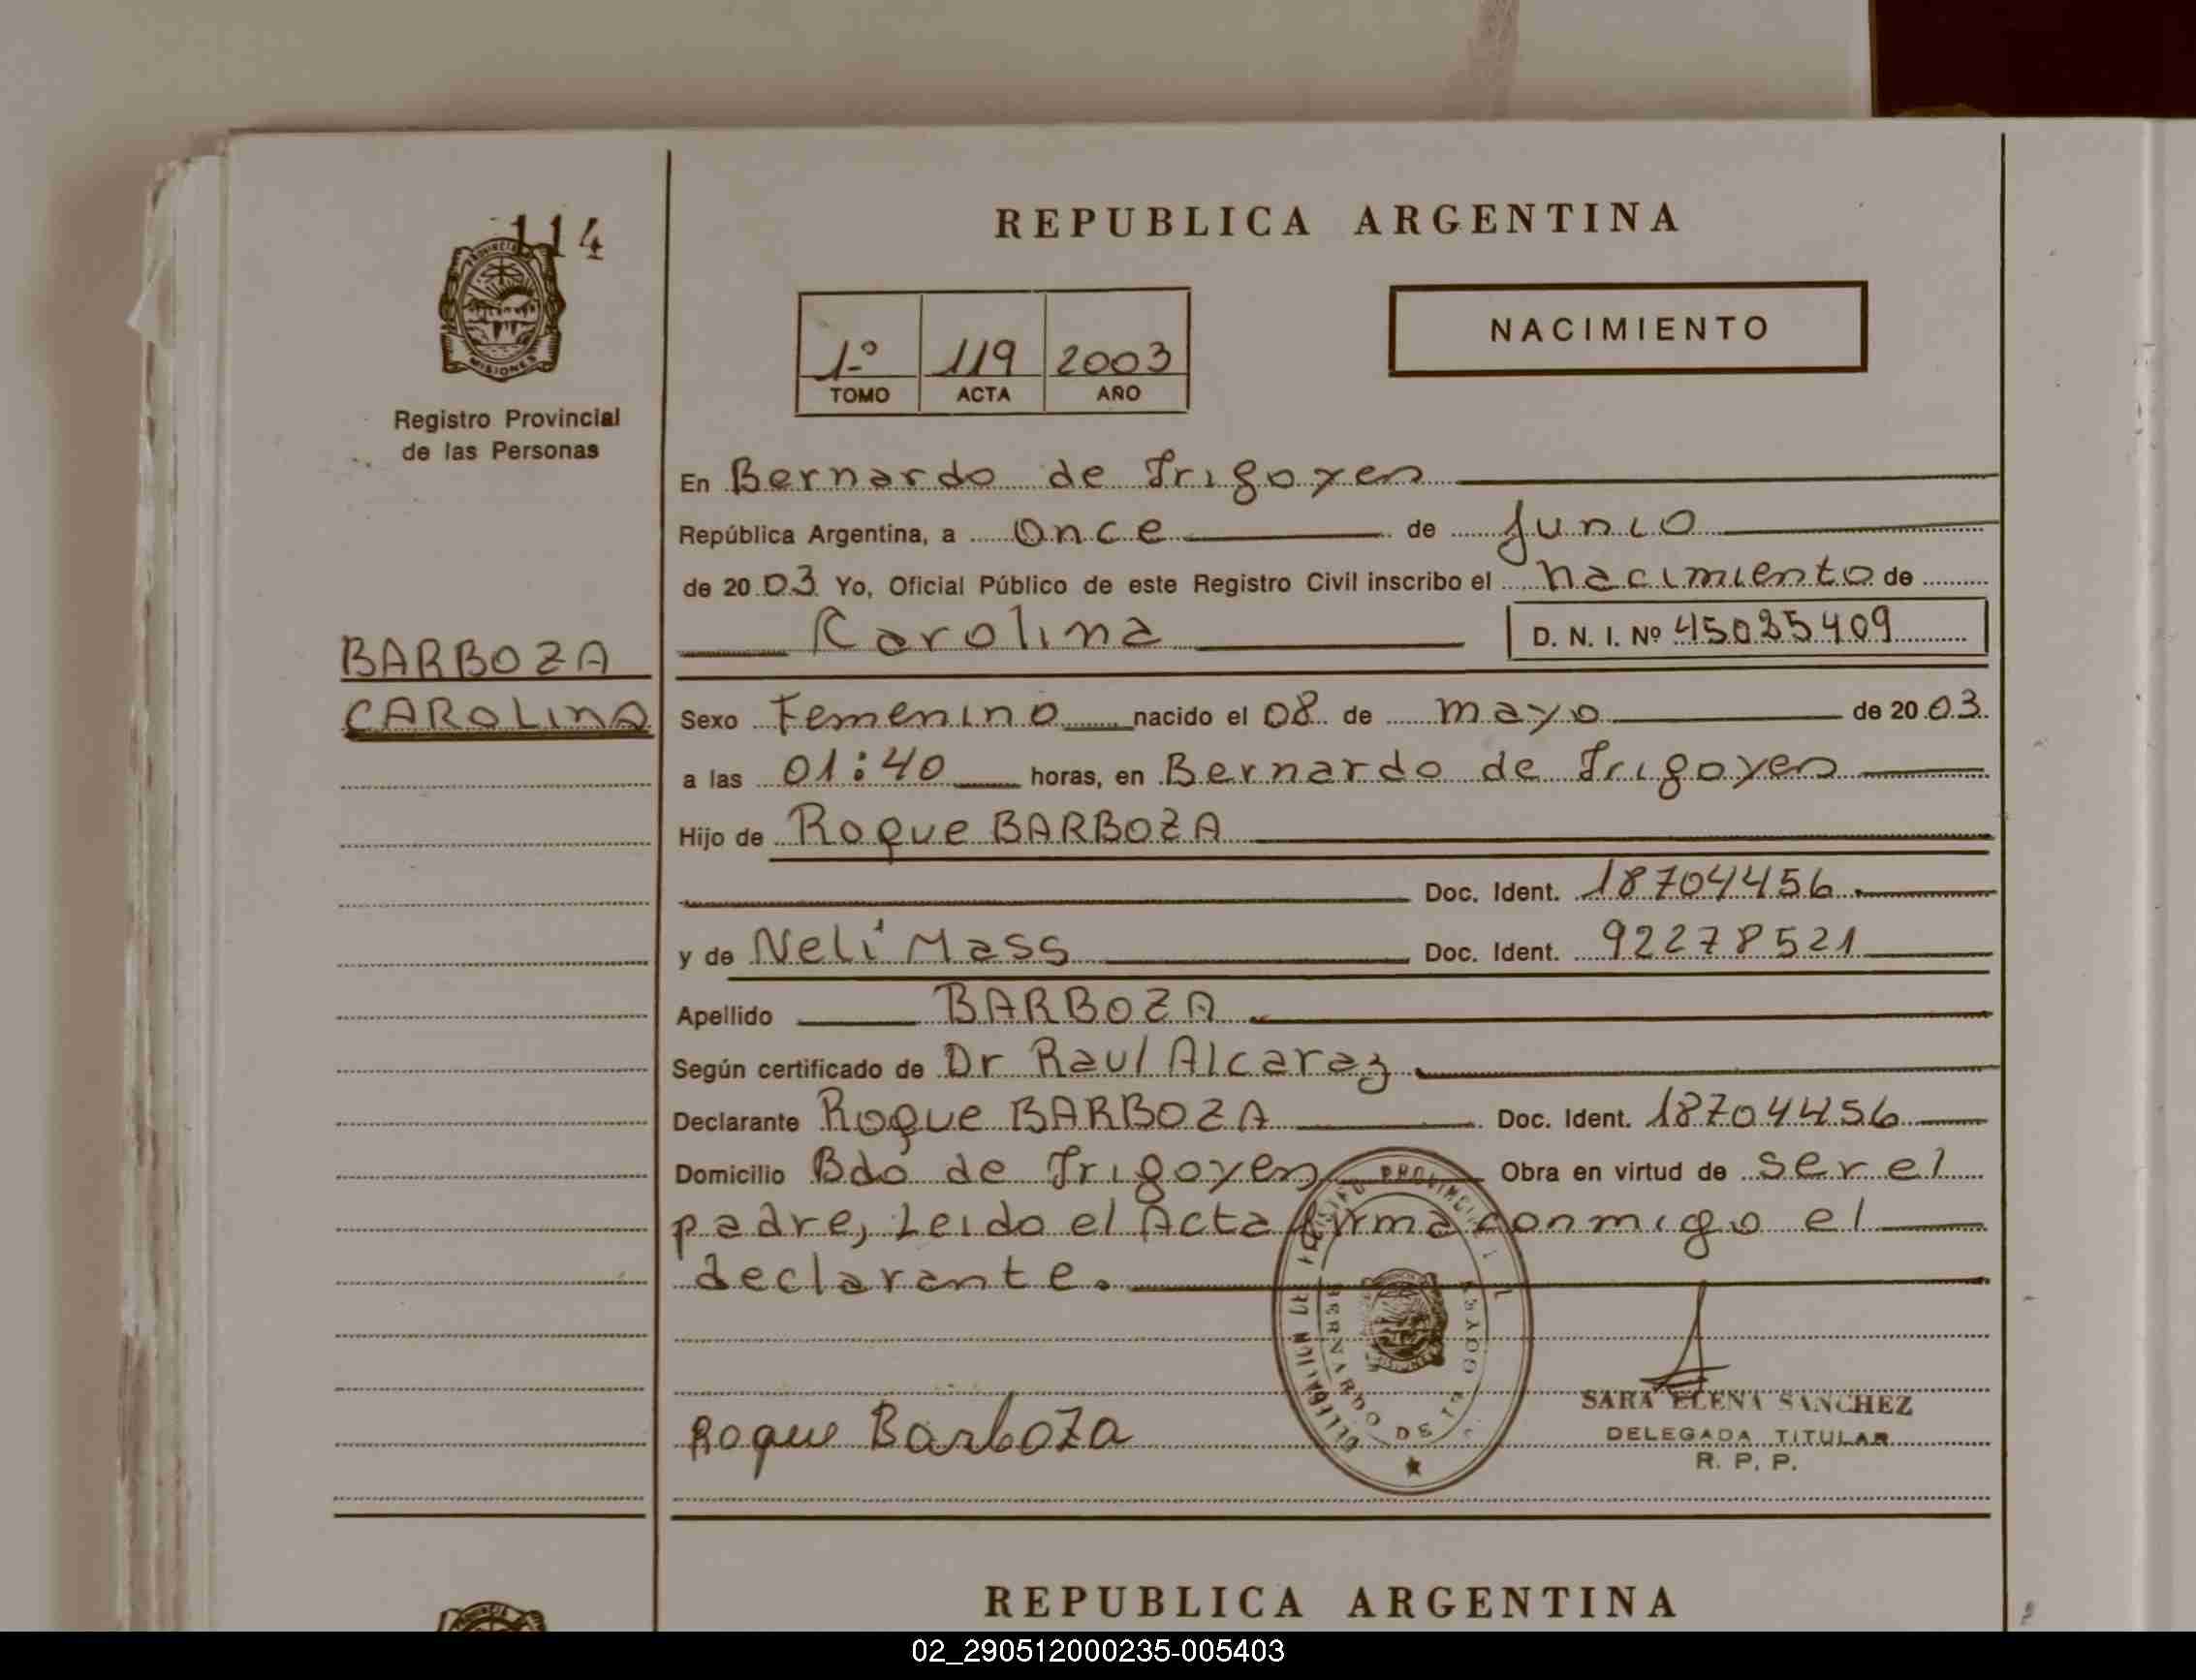 114
PROVINCIA
MISIONES
Registro Provincial
de las Personas
BARBOZA
CAROLINA
REPUBLICA ARGENTINA
1º 119 2003
TOMO ACTA AÑO
NACIMIENTO
En Bernardo de Irigoyen
República Argentina, a once de Junio
de 2003 Yo, Oficial Público de este Registro Civil inscribo el nacimiento de
Carolina D. N. I. Nº 45025409
Sexo Femenino nacido el 08 de mayo de 2003
a las 01:40 horas, en Bernardo de Irigoyen
Hijo de Roque BARBOZA
Doc. Ident. 18704456
y de Nelí Mass Doc. Ident. 92278521
Apellido BARBOZA
Según certificado de Dr Raul Alcaraz
Declarante Roque BARBOZA Doc. Ident. 18704456
Domicilio Bdo de Irigoyen Obra en virtud de ser el
padre, Leido el Acta firma conmigo el
declarante.
BERNARDO DE IRIGOYEN
MISIONES
Roque Barboza
SARA ELENA SANCHEZ
DELEGADA TITULAR
R. P. P.
REPUBLICA ARGENTINA
02_290512000235-005403